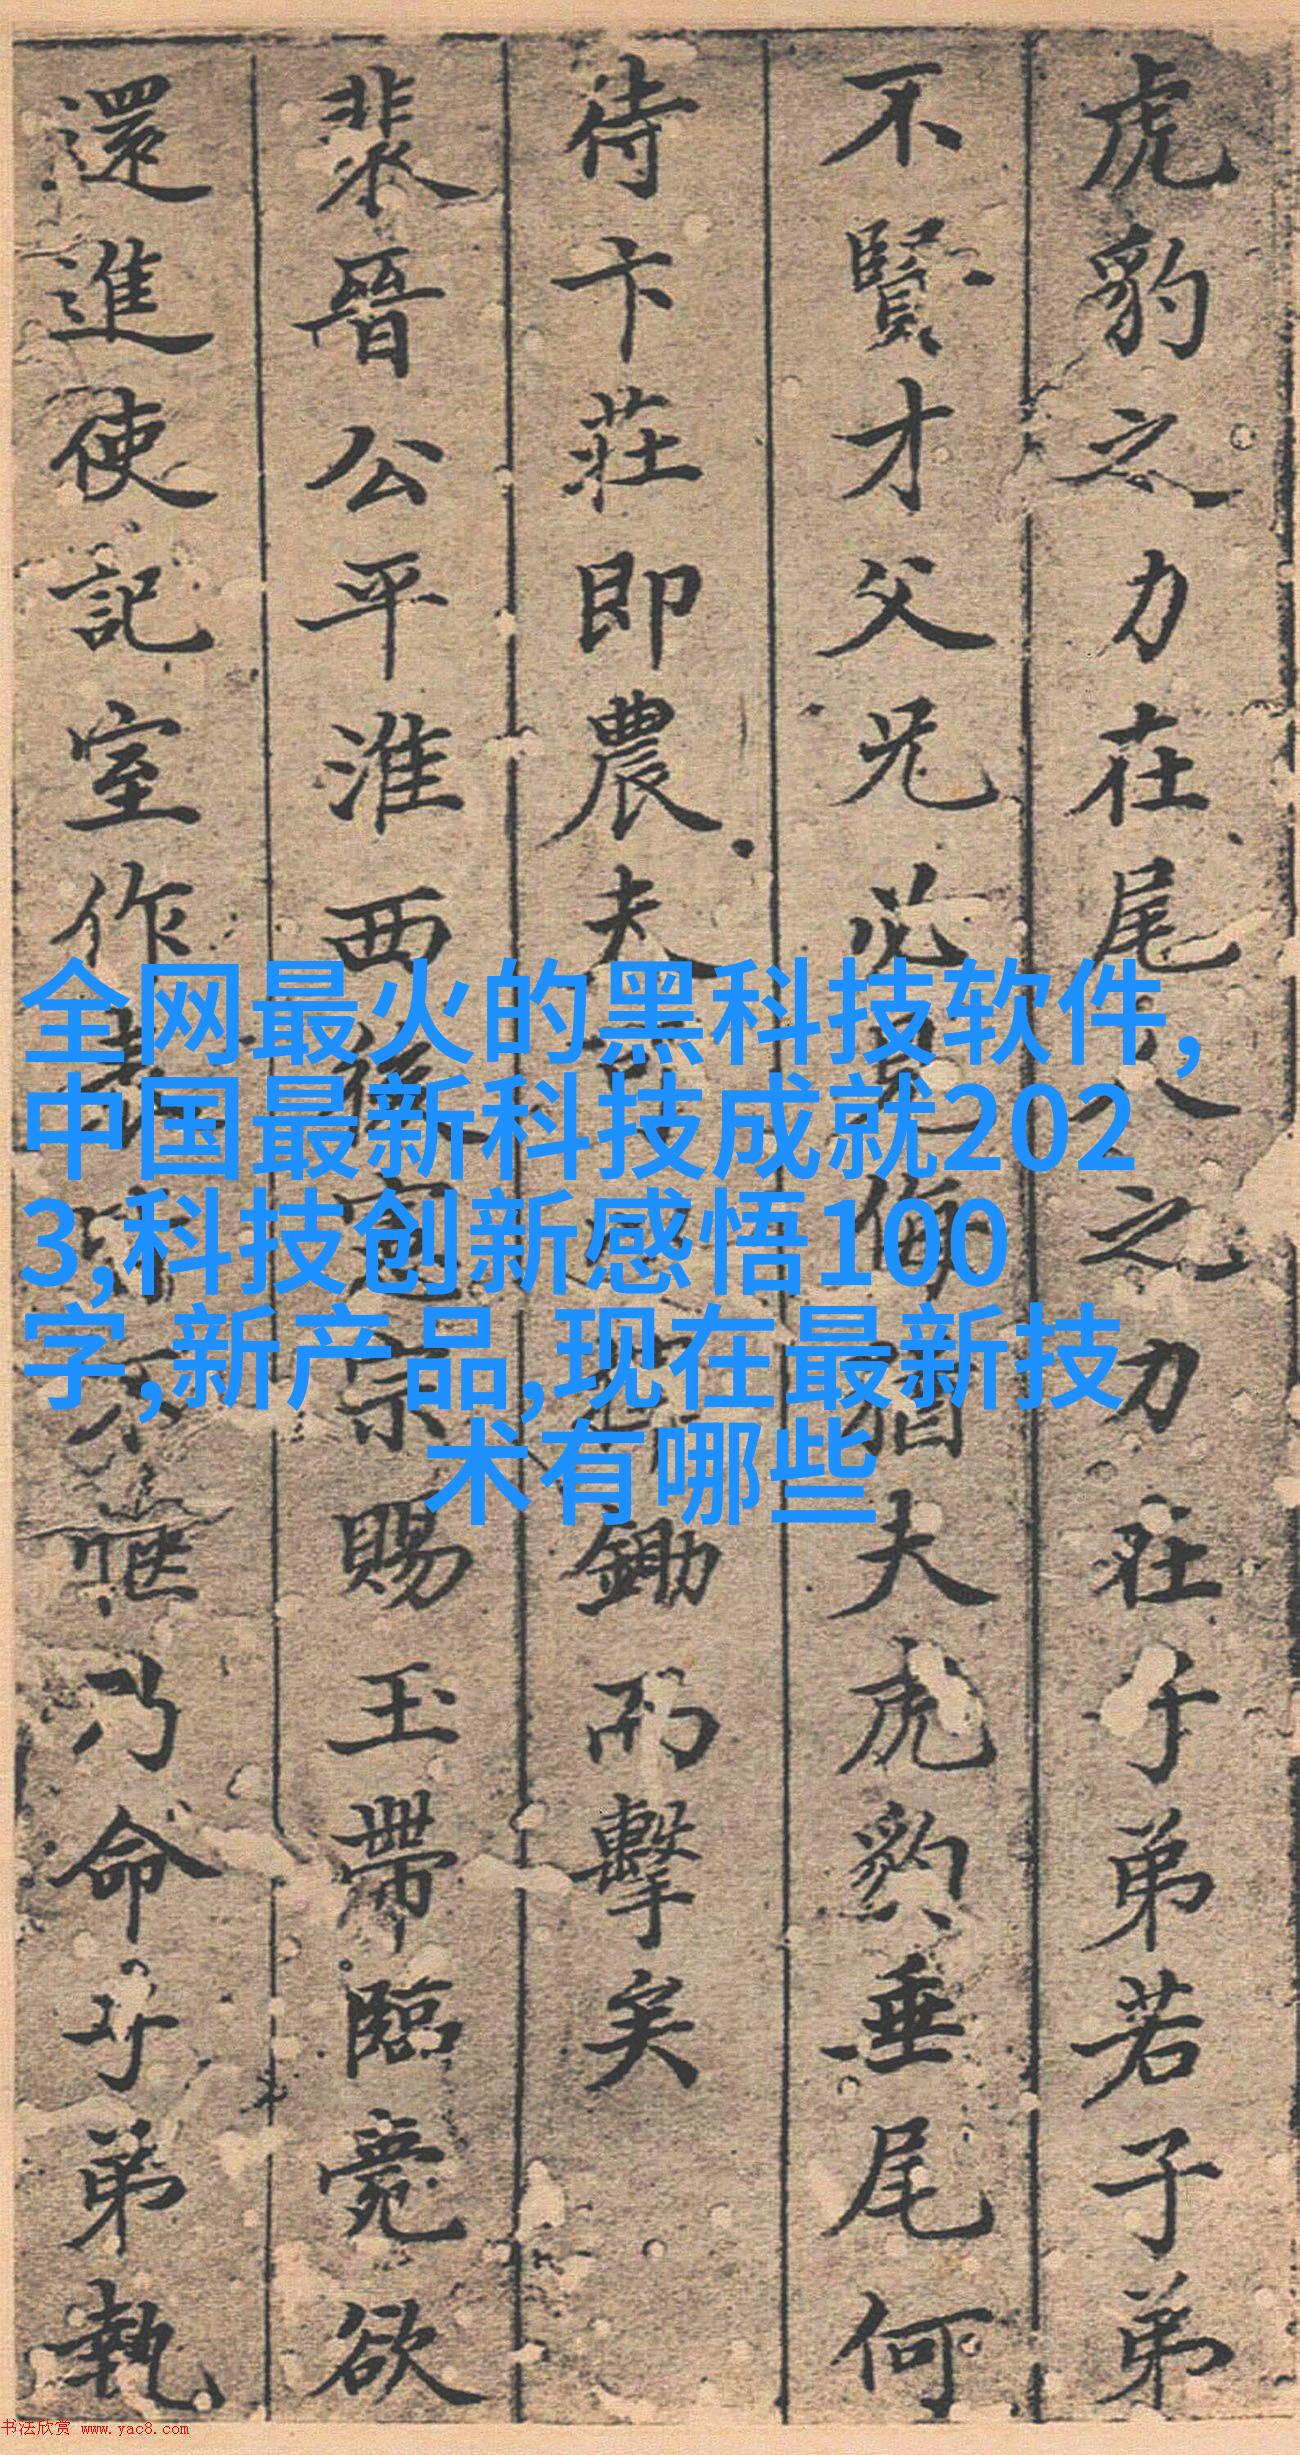 虎豹之力在尾人之力在子弟若子弟
不賢才父兄必見侮猶夫虎豹垂尾何
待卞莊即農夫鋤而擊矣
裴晉公平淮西後憲宗賜玉帶臨薨欲
還進使記室作表不愜乃命子弟執
全网最火的黑科技软件,
中国最新科技成就202
3,科技创新感悟100
字,新产品,现在最新技
术有哪些
书法欣赏 www.yac8.com